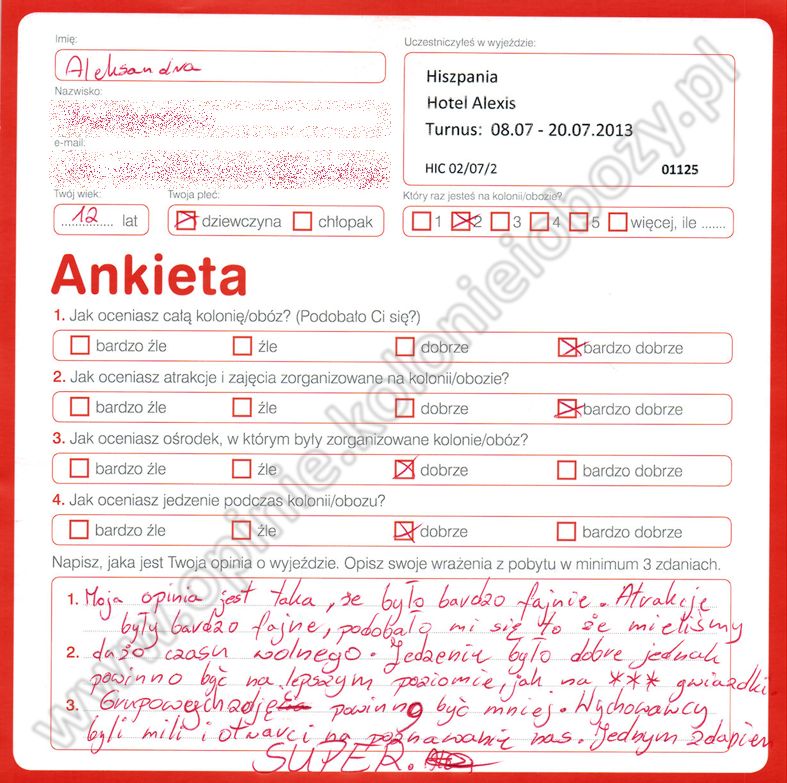 Imię:
Aleksandra
Uczestniczyłeś w wyjeździe:
Hiszpania
Hotel Alexis
Turnus: 08.07 - 20.07.2013
HIC 02/07/2 01125
Nazwisko:
e-mail:
Twój wiek:
12 lat
Twoja płeć:
dziewczyna chłopak
Który raz jesteś na kolonii/obozie?
1 2 3 4 5 więcej, ile .......
Ankieta
1. Jak oceniasz całą kolonię/obóz? (Podobało Ci się?)
bardzo źle źle dobrze bardzo dobrze
2. Jak oceniasz atrakcje i zajęcia zorganizowane na kolonii/obozie?
bardzo źle źle dobrze bardzo dobrze
3. Jak oceniasz ośrodek, w którym były zorganizowane kolonie/obóz?
bardzo źle źle dobrze bardzo dobrze
4. Jak oceniasz jedzenie podczas kolonii/obozu?
bardzo źle źle dobrze bardzo dobrze
Napisz, jaka jest Twoja opinia o wyjeździe. Opisz swoje wrażenia z pobytu w minimum 3 zdaniach.
1. Moja opinia jest taka, że było bardzo fajnie. Atrakcje
były bardzo fajne, podobało mi się to że mieliśmy
2. dużo czasu wolnego. Jedzenie było dobre jednak
powinno być na lepszym poziomie, jak na *** gwiazdki.
3. Grupowych zdjęć powinno być mniej. Wychowawcy
byli mili i otwarci na poznawanie nas. Jednym zdaniem
SUPER.
www.opinie.kolonieiobozy.pl